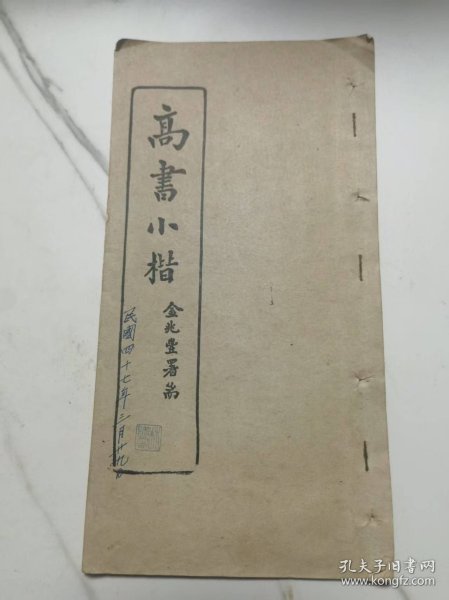 高書小楷
金兆豐署耑
民國四十七年三月廿九日
孔夫子旧书网
www.kongfz.com